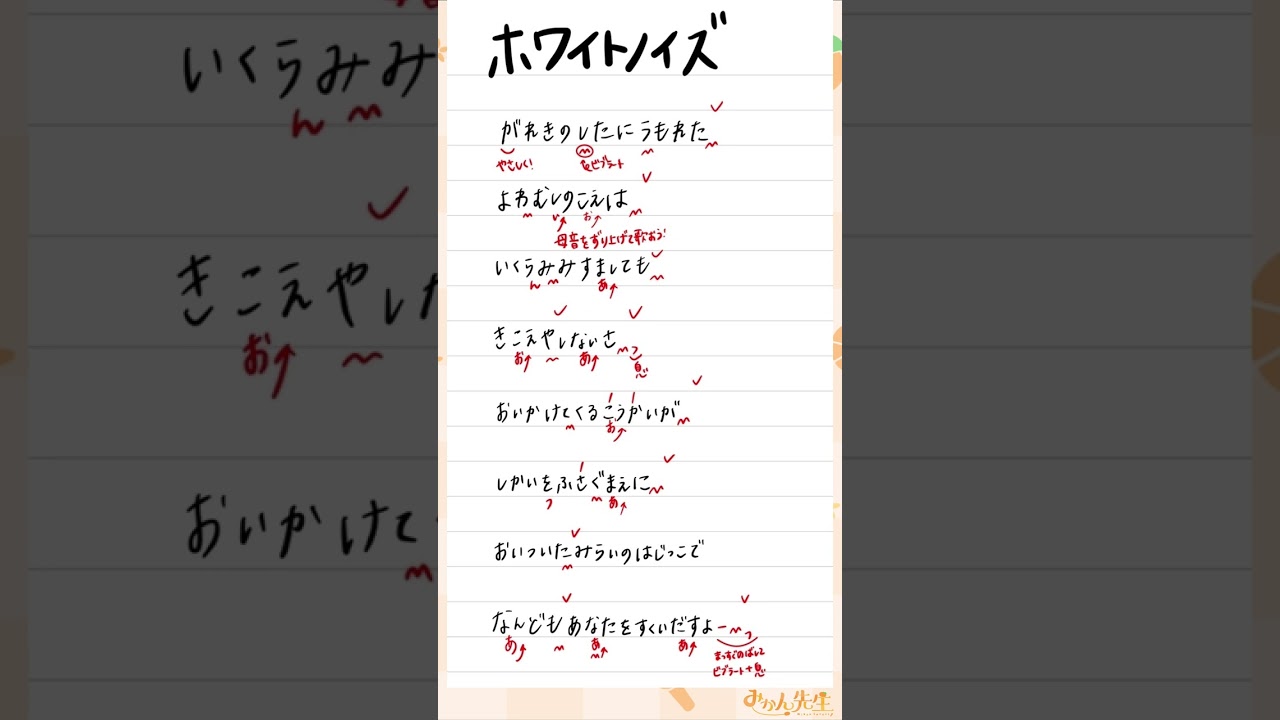 ホワイトノイズ
がれきのしたにうもれた
やさしく! ビブラート
よわむしのこえは
い お
母音をずり上げて歌おう!
いくらみみすましても
ん あ
きこえやしないさ
お あ っ
息
おいかけてくるこうかいが
お
しかいをふさぐまえに
っ あ
おいついたみらいのはじっこで
なんどもあなたをすくいだすよー
あ あ あ っ
まっすぐのばして
ビブラート+息
みかん先生
いくらみみ
ん
きこえやした
お
おいかけて